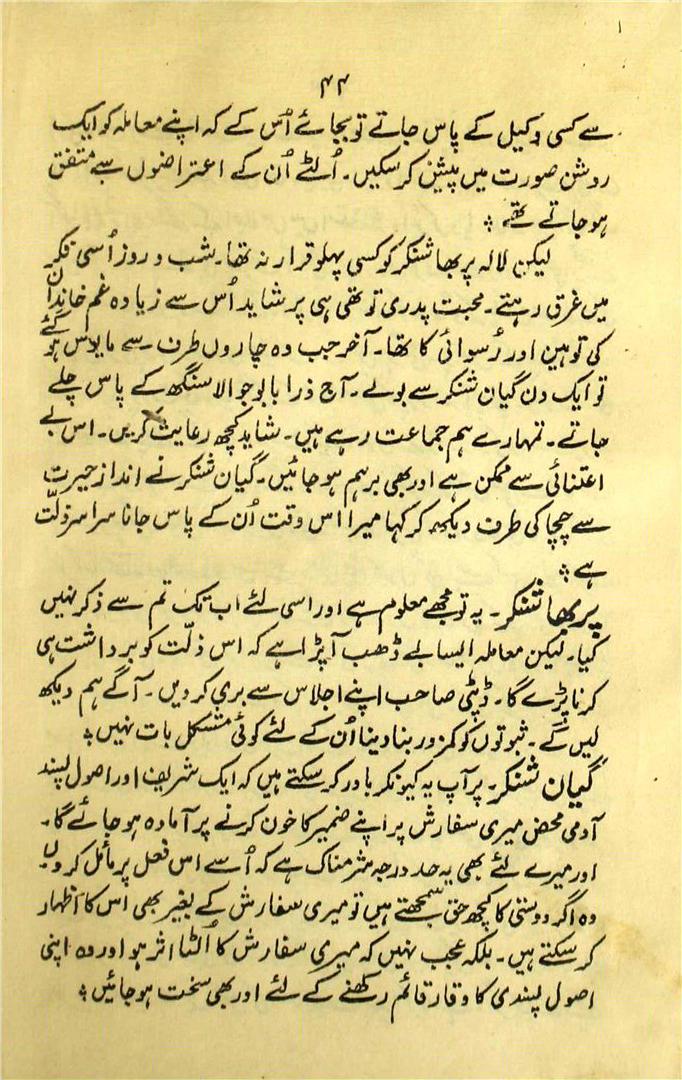 ۴۴
سے کسی وکیل کے پاس جاتے تو بجائے اُس کے کہ اپنے معاملہ کو ایک
روشن صورت میں پیش کر سکیں۔ اُلٹے اُن کے اعتراضوں سے متفق
ہو جاتے تھے ۔
لیکن لالہ پربھا شنکر کو کسی پہلو قرار نہ تھا۔ شب و روز اُسی فکر
میں غرق رہتے۔ محبت پدری تو تھی ہی پر شاید اُس سے زیادہ غم خاندان
کی توہین اور رُسوائی کا تھا۔ آخر جب وہ چاروں طرف سے مایوس ہو گئے
تو ایک دن گیان شنکر سے بولے۔ آج ذرا بابو جوالا سنگھ کے پاس چلے
جاتے۔ تمہارے ہم جماعت رہے ہیں۔ شاید کچھ رعایت کریں۔ اس بے
اعتنائی سے ممکن ہے اور بھی برہم ہو جائیں۔ گیان شنکر نے انداز حیرت
سے چچا کی طرف دیکھ کر کہا میرا اس وقت اُن کے پاس جانا سراسر ذلّت
ہے ۔
پربھا شنکر۔ یہ تو مجھے معلوم ہے اور اسی لئے اب تک تم سے ذکر نہیں
کیا۔ لیکن معاملہ ایسا بے ڈھب آپڑا ہے کہ اس ذلّت کو برداشت ہی
کرنا پڑے گا۔ ڈپٹی صاحب اپنے اجلاس سے بری کر دیں۔ آگے ہم دیکھ
لیں گے۔ ثبوتوں کو کمزور بنا دینا اُن کے لئے کوئی مشکل بات نہیں ۔
گیان شنکر۔ پر آپ یہ کیونکر باور کر سکتے ہیں کہ ایک شریف اور اصول پسند
آدمی محض میری سفارش پر اپنے ضمیر کا خون کرنے پر آمادہ ہو جائے گا۔
اور میرے لئے بھی یہ حد درجہ شرمناک ہے کہ اُسے اس فعل پر مائل کروں
وہ اگر دوستی کا کچھ حق سمجھتے ہیں تو میری سفارش کے بغیر بھی اس کا اظہار
کر سکتے ہیں۔ بلکہ عجب نہیں کہ میری سفارش کا اُلٹا اثر ہو اور وہ اپنی
اصول پسندی کا وقار قائم رکھنے کے لئے اور بھی سخت ہو جائیں ۔